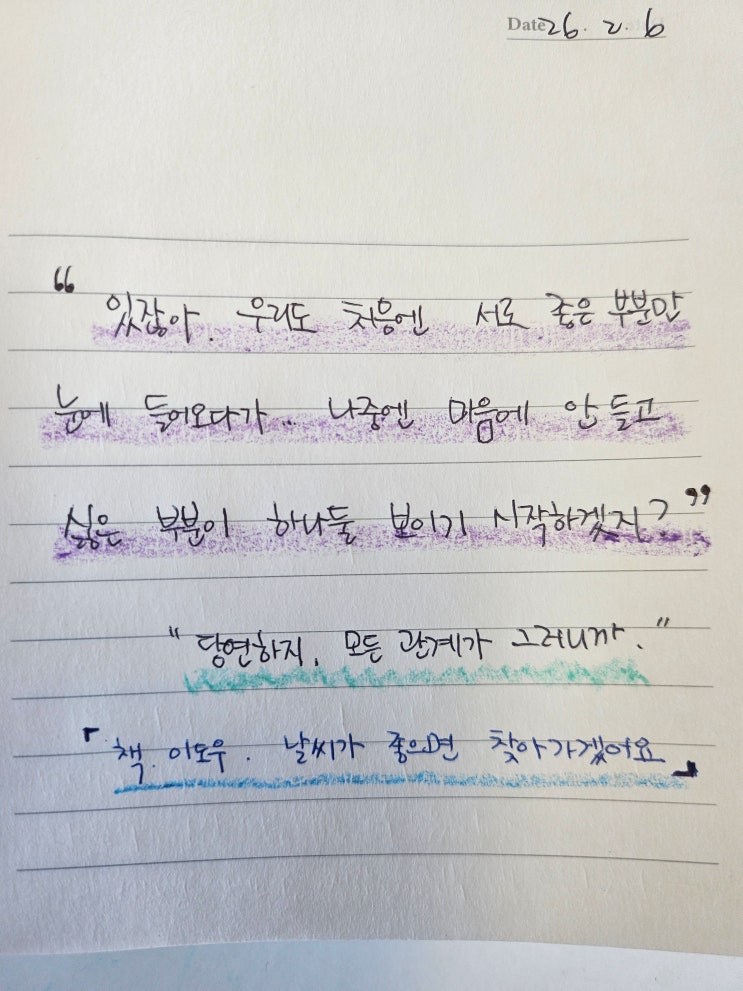 Date 26. 2. 6
“ 있잖아. 우리도 처음엔 서로 좋은 부분만
눈에 들어오다가... 나중엔 마음에 안 들고
싫은 부분이 하나둘 보이기 시작하겠지? ”
“ 당연하지. 모든 관계가 그러니까. ”
「책. 이도우. 날씨가 좋으면 찾아가겠어요」